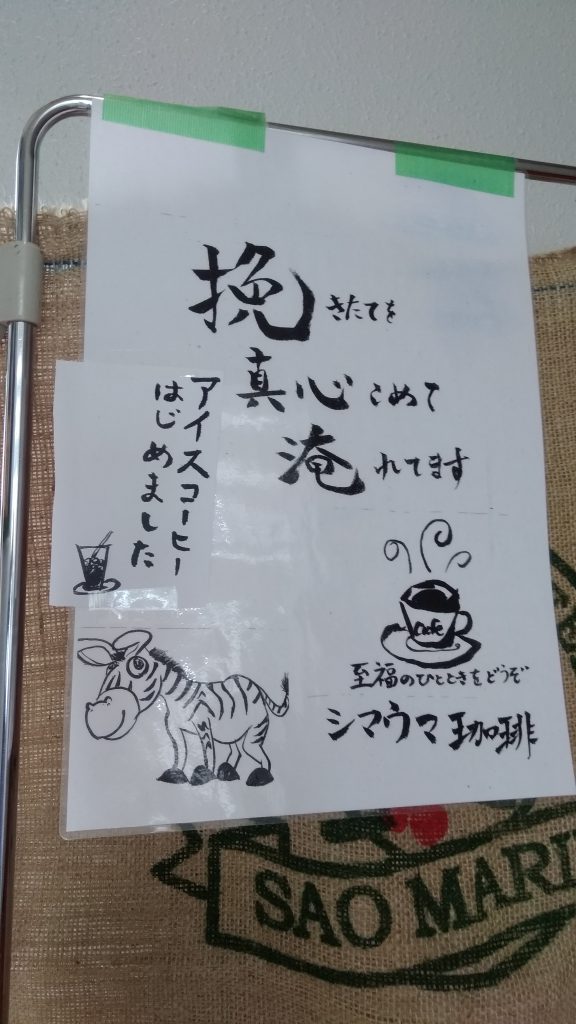 挽きたてを
真心こめて
淹れてます
アイスコーヒー
はじめました
Cafe
至福のひとときをどうぞ
シマウマ珈琲
SAO MARI